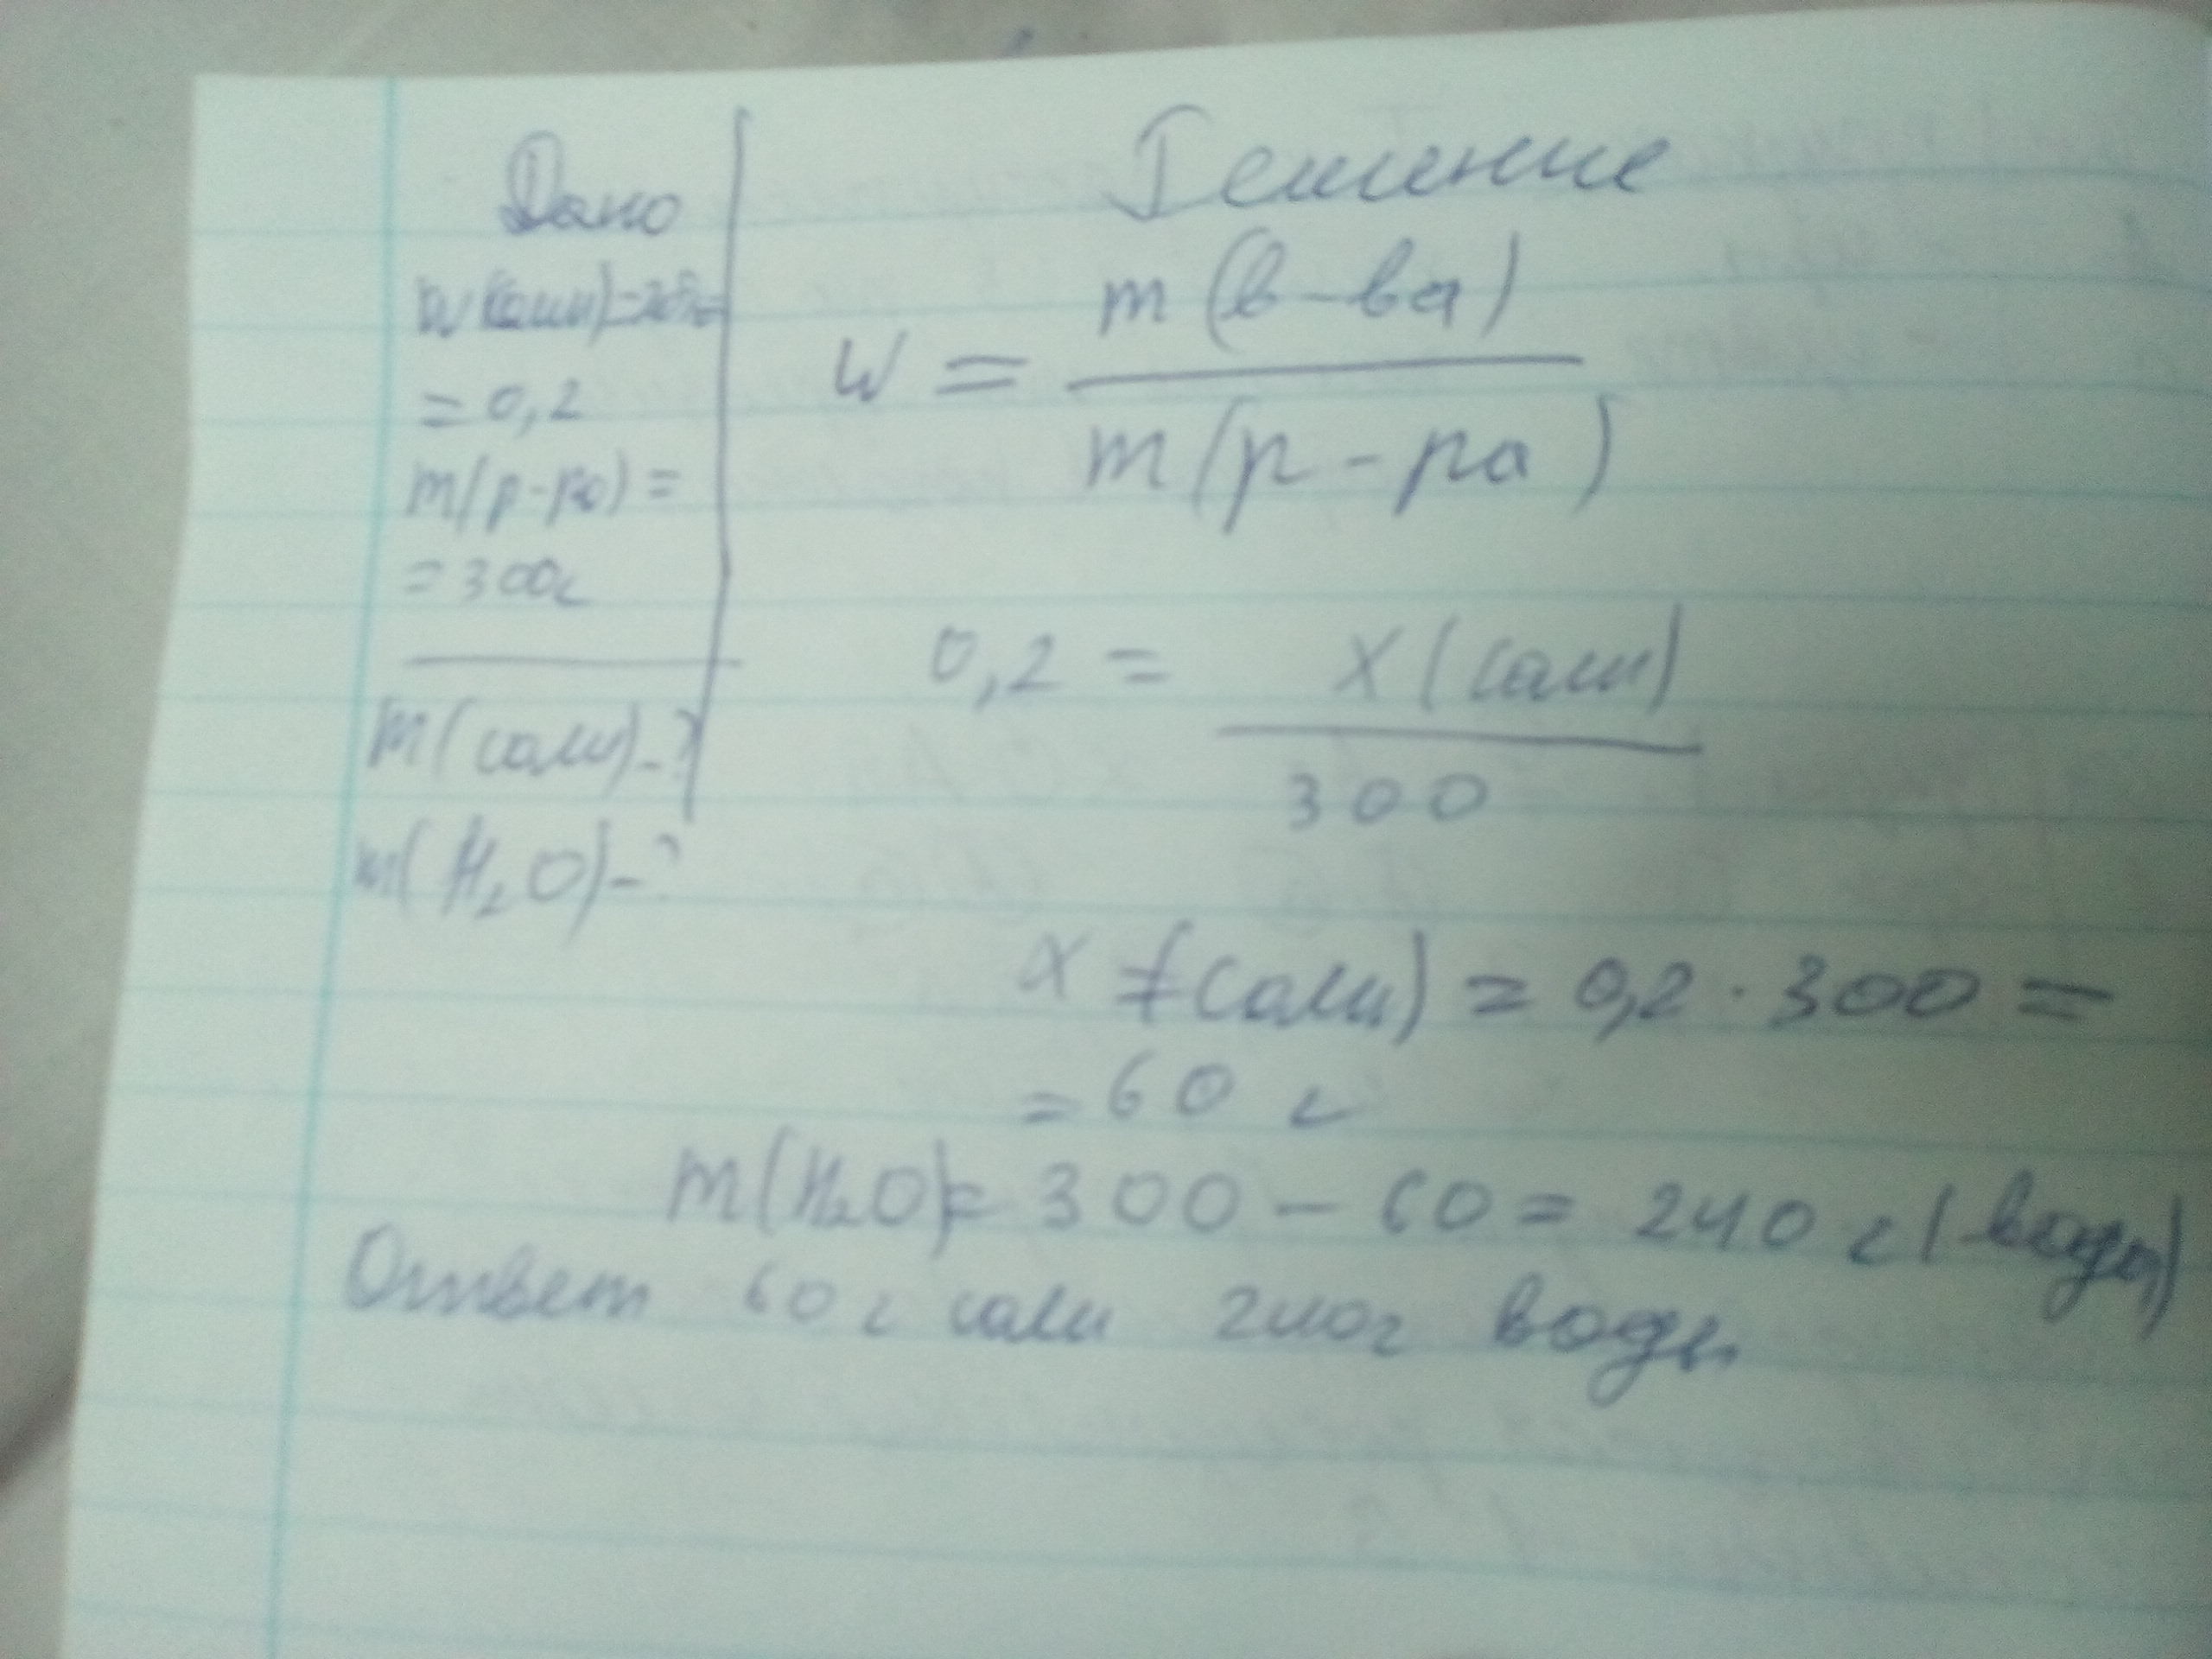 Дано
W(соли)=20%=
=0,2
m(р-ра)=
=300г
m(соли)-?
m(H₂O)-?
Решение
W = m(в-ва)
m(р-ра)
0,2 = X(соли)
300
X (соли) = 0,2 · 300 =
= 60 г
m(H₂O)= 300 - 60 = 240 г (воды)
Ответ 60 г соли 240г воды